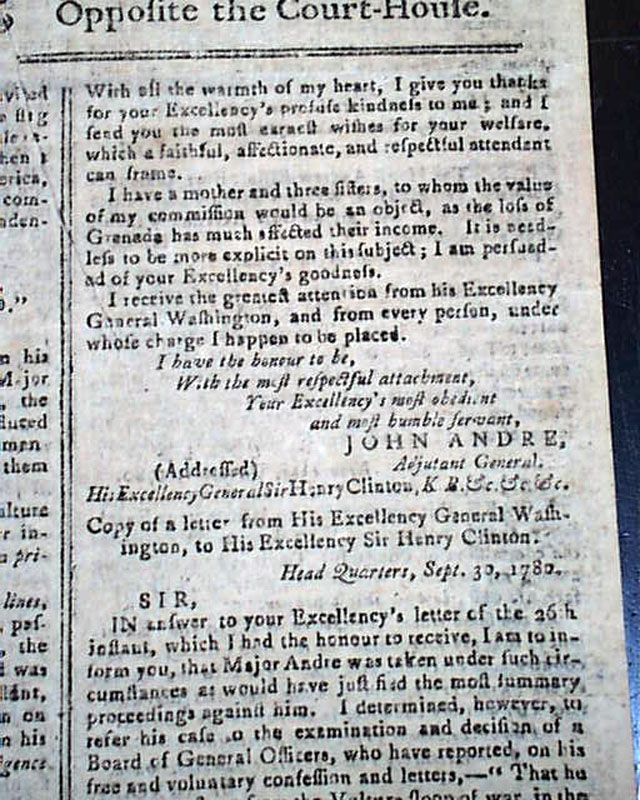 Oppoſite the Court-Houſe.
erica,
com-
his
Major
the
duced
men
them
in-
pri-
lines,
poſ-
the
was
on
his
With all the warmth of my heart, I give you thanks
for your Excellency's profuſe kindneſs to me; and I
ſend you the moſt earneſt wiſhes for your welfare,
which a faithful, affectionate, and reſpectful attendant
can frame.
I have a mother and three ſiſters, to whom the value
of my commiſſion would be an object, as the loſs of
Grenada has much affected their income. It is need-
leſs to be more explicit on this ſubject; I am perſuad-
ed of your Excellency's goodneſs.
I receive the greateſt attention from his Excellency
General Waſhington, and from every perſon, under
whoſe charge I happen to be placed.
I have the honour to be,
With the moſt reſpectful attachment,
Your Excellency's moſt obedient
and moſt humble ſervant,
JOHN ANDRE,
(Addreſſed) Adjutant General.
His Excellency General Sir Henry Clinton, K B. &c. &c. &c.
Copy of a letter from His Excellency General Waſh-
ington, to His Excellency Sir Henry Clinton.
Head Quarters, Sept. 30, 1780.
SIR,
IN anſwer to your Excellency's letter of the 26th
inſtant, which I had the honour to receive, I am to in-
form you, that Major Andre was taken under ſuch cir-
cumſtances as would have juſtified the moſt ſummary
proceedings againſt him. I determined, however, to
refer his caſe to the examination and deciſion of a
Board of General Officers, who have reported, on his
free and voluntary confeſſion and letters,—" That he
from the Vulture ſloop of war, in the